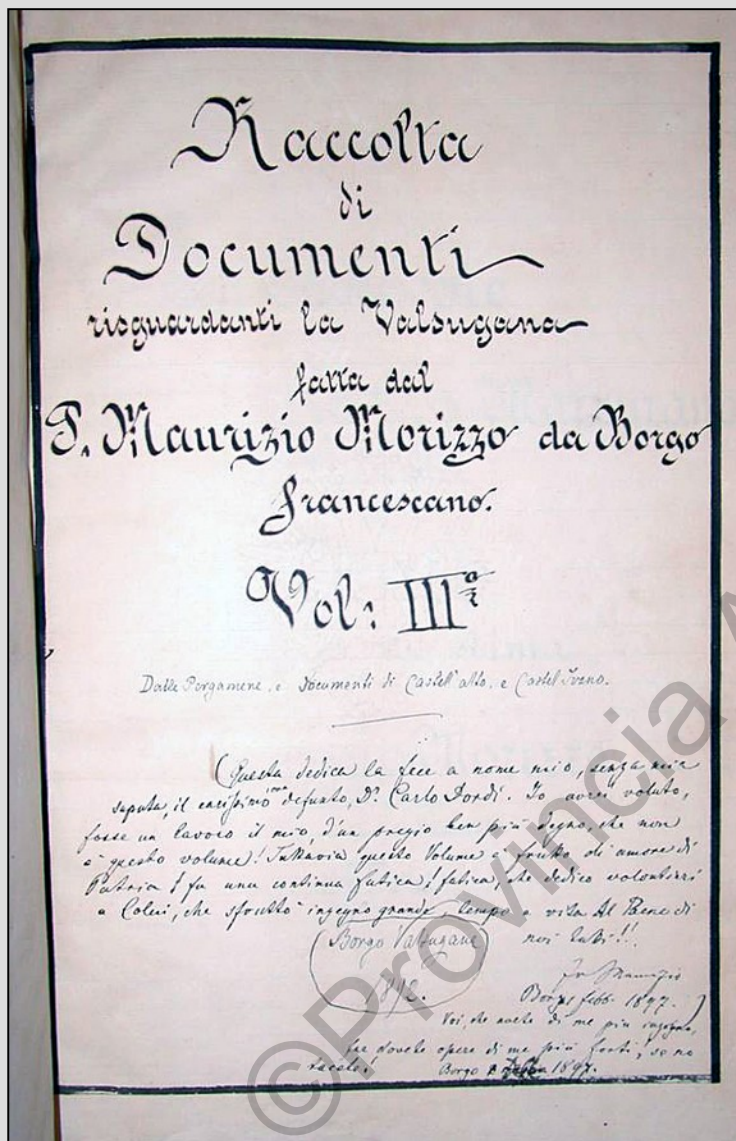 Raccolta
di
Documenti
risguardanti la Valsugana
fatta dal
P. Maurizio Morizzo da Borgo
francescano.
Vol: III
Dalle Pergamene, e Documenti di Castell'alto, e Castel Ivano.
(Questa dedica la fece a nome mio, senza mia
saputa, il carissimo defunto, Dr. Carlo Dordi. Io avrei voluto,
fosse un lavoro il mio, d'un pregio ben più degno, che non
è questo volume! Tuttavia questo Volume è frutto di amore di
Patria! fu una continua fatica! fatica, che dedico volontieri
a Colui, che sfruttò ingegno grande, tempo e vita Al Bene di
noi tutti!!
Borgo Valsugana
1892.
Borgo febb. 1897.)
Voi, che avete di me più ingegno,
fare dovete opere di me più forti! se no
tacete!
Borgo 1897.
©Provincia A